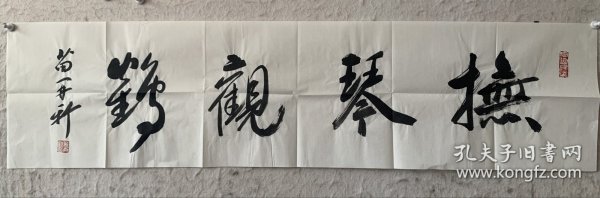 撫琴觀鶴
苗再新
孔夫子旧书网
www.kongfz.com